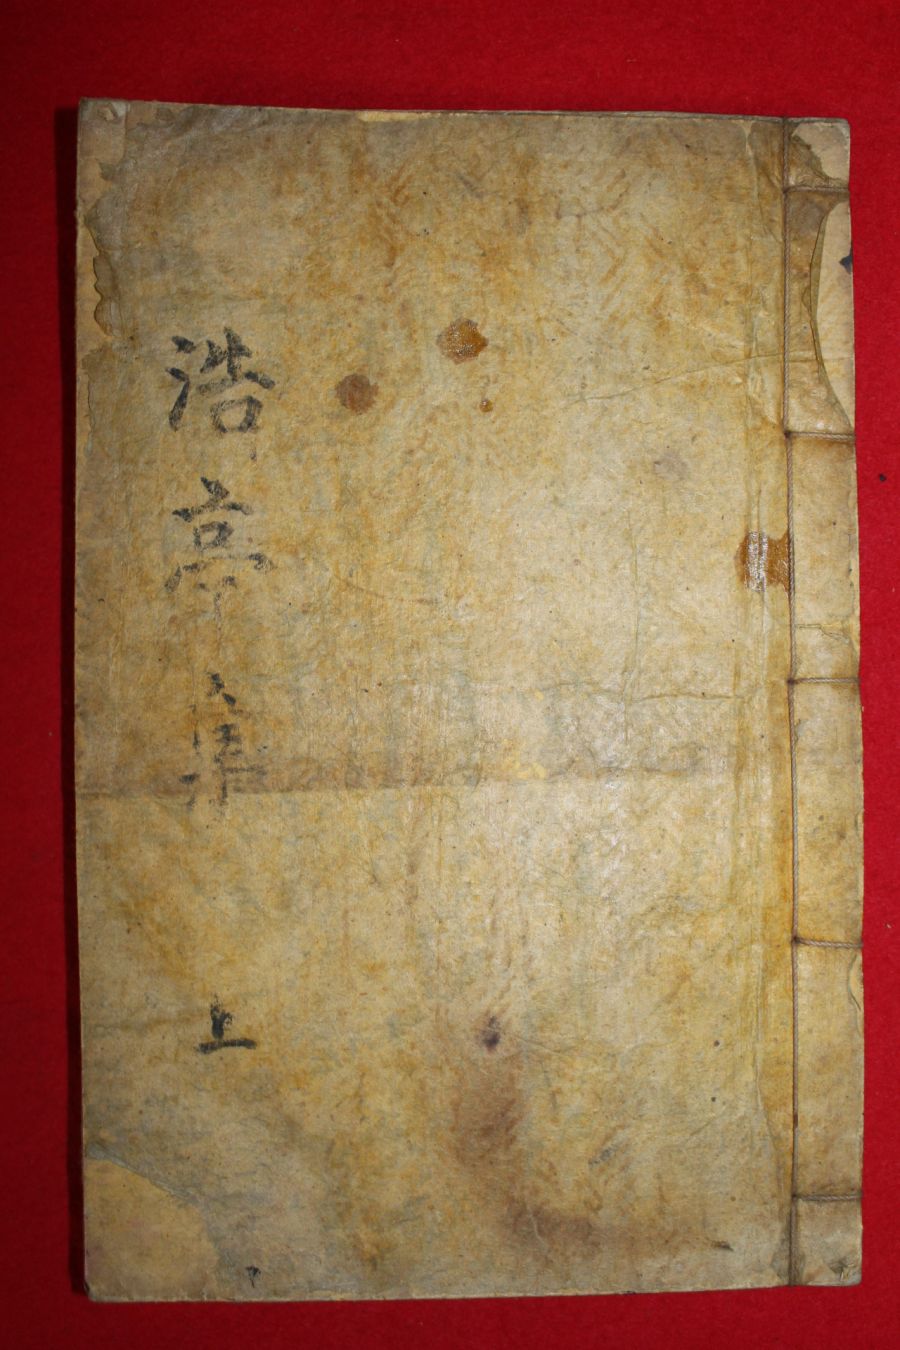 浩亭集 上